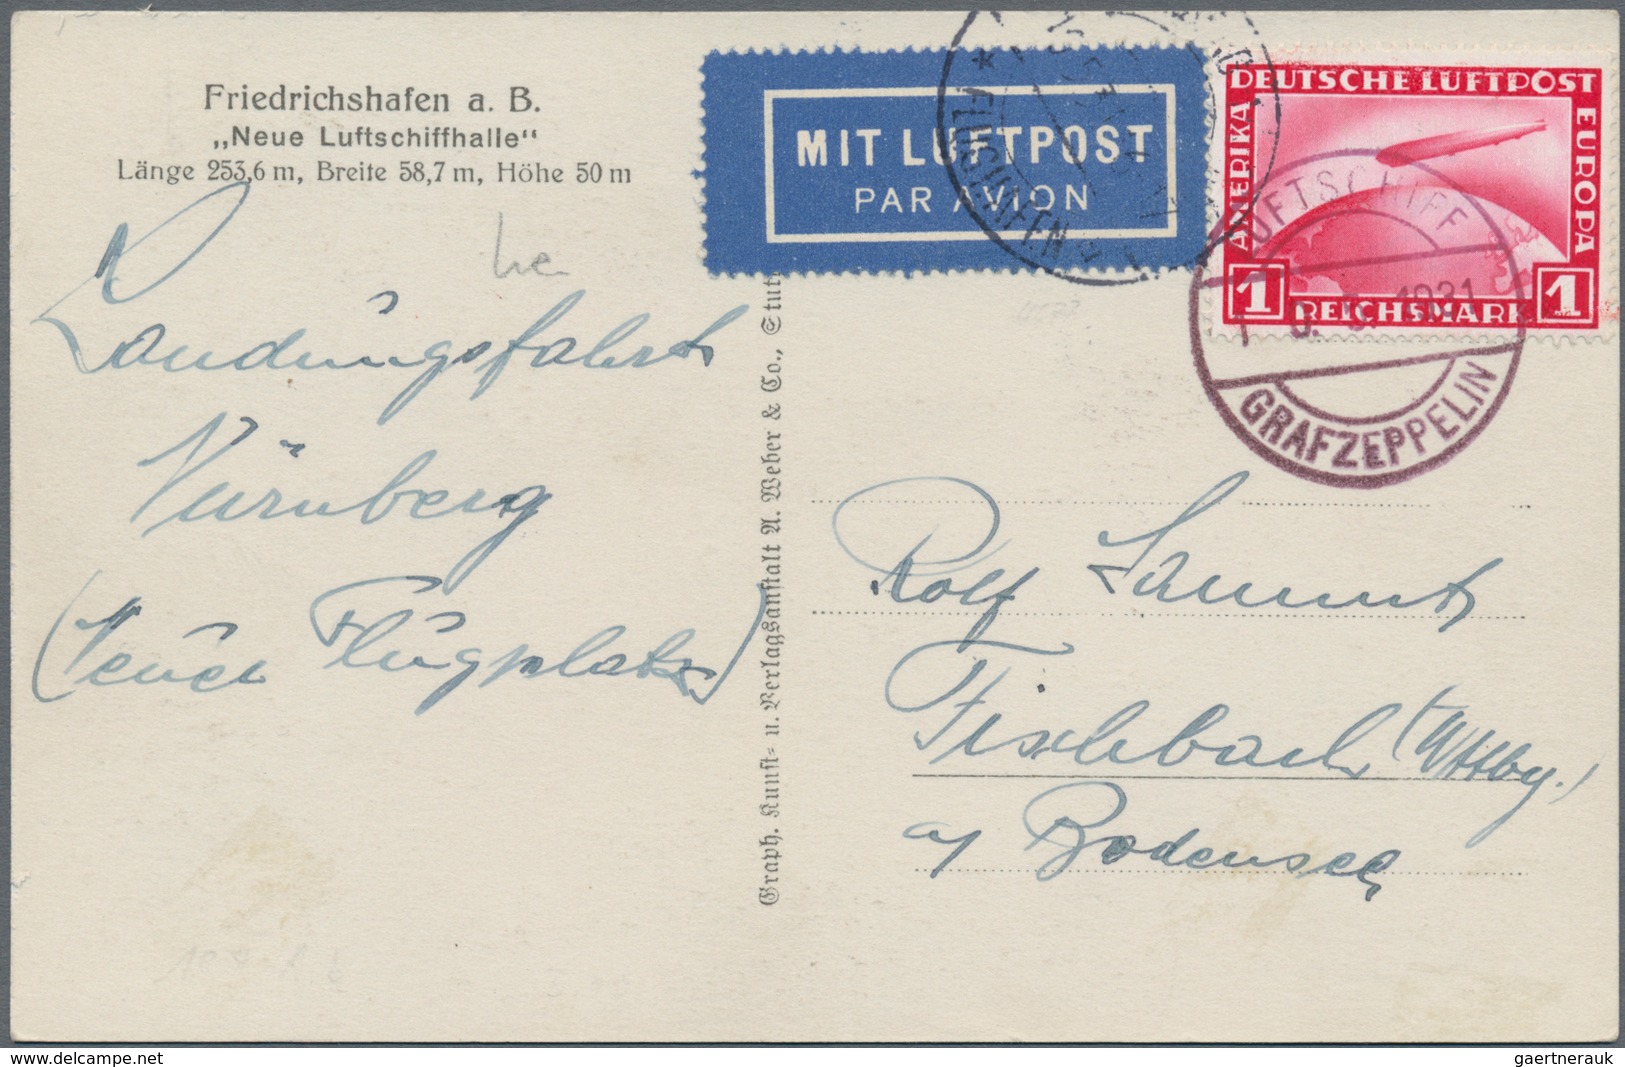 Friedrichshafen a. B.
„Neue Luftschiffhalle"
Länge 253,6 m, Breite 58,7 m, Höhe 50 m
Landungsfahrt
Nürnberg
(Neuer Flugplatz)
Graph. Kunst= u. Verlagsanstalt A. Weber & Co., Stut
MIT LUFTPOST
PAR AVION
* FLUGHAFEN
DEUTSCHE LUFTPOST
AMERIKA
EUROPA
1 REICHSMARK 1
LUFTSCHIFF
1931
GRAF ZEPPELIN
Rolf
Fischbach (Wttbg.)
a/ Bodensee
delcampe.net
gaertnerauk